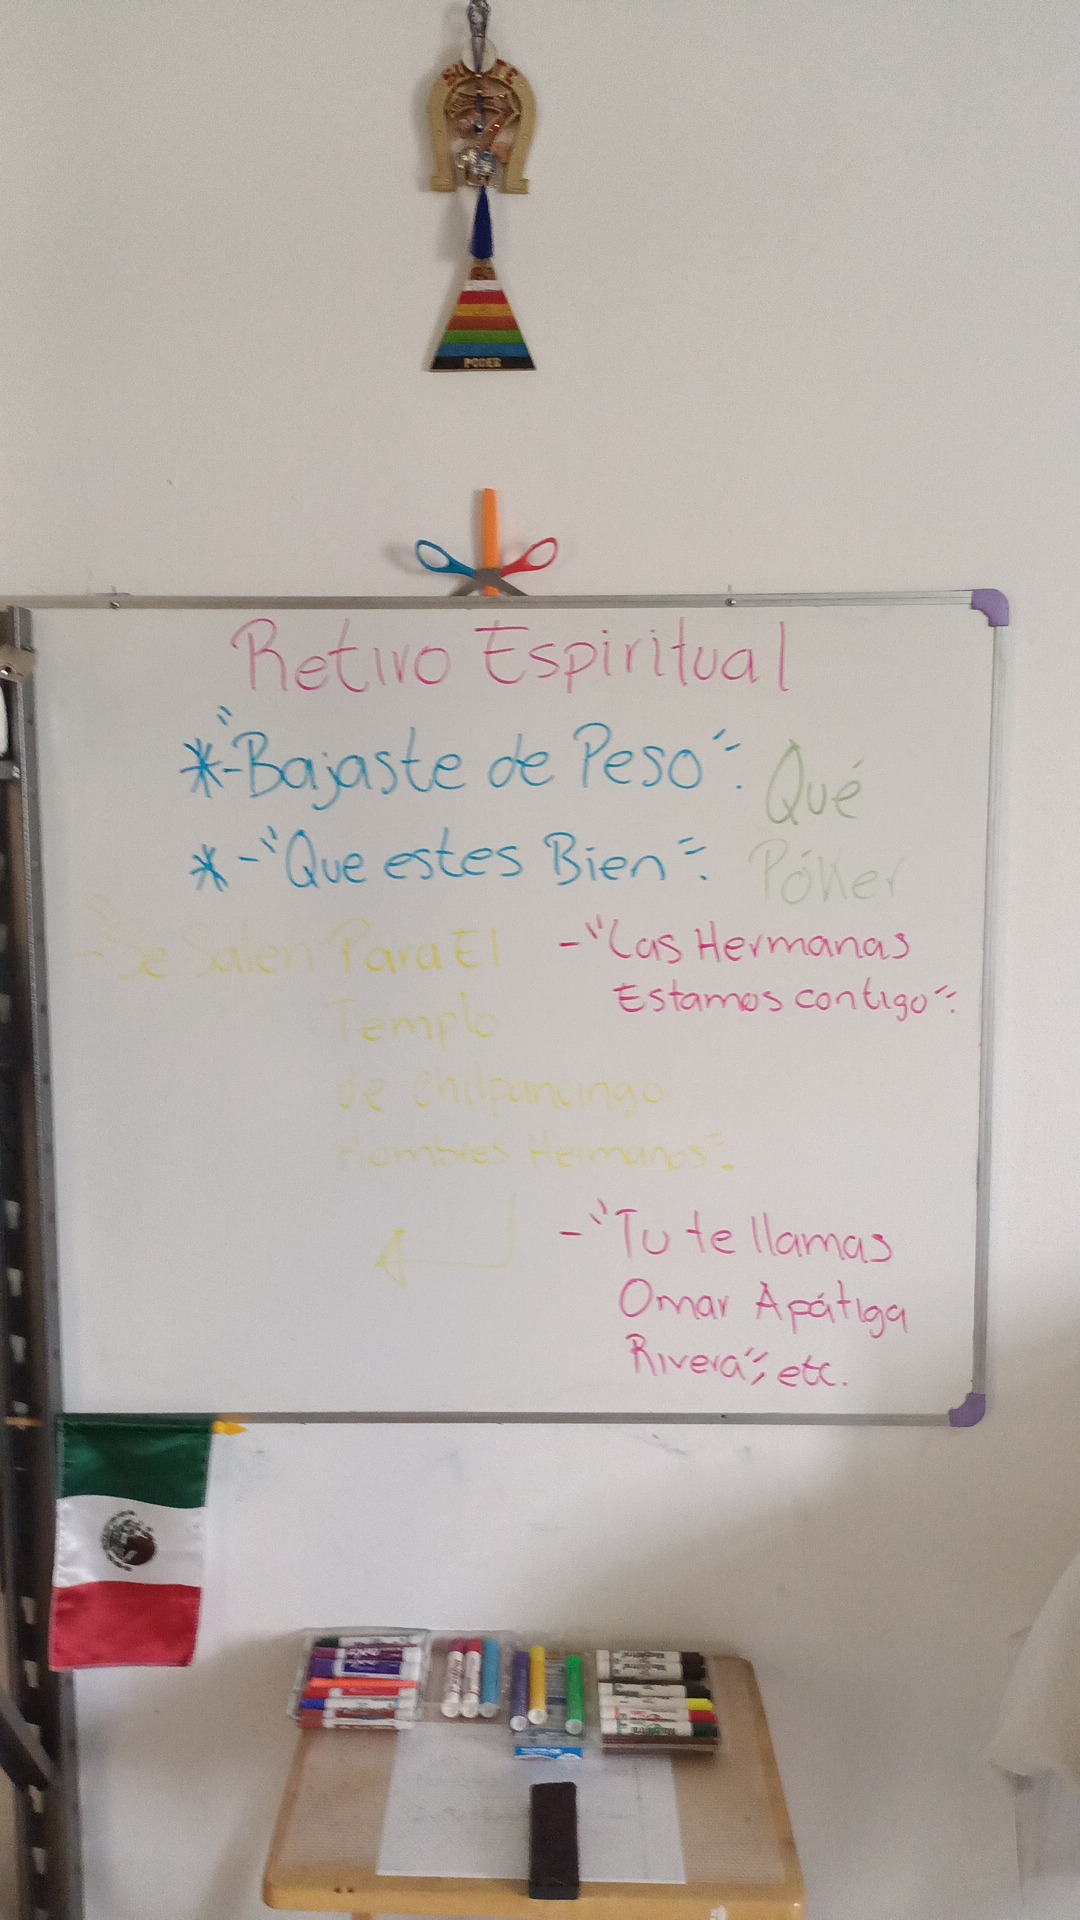 SUERTE
PODER
Retiro Espiritual
*-"Bajaste de Peso".
Qué
*-"Que estes Bien".
Póker
-"Se Salen Para El
Templo
de Chilpancingo
Hombres Hermanos".
-"Las Hermanas
Estamos contigo".
-"Tu te llamas
Omar Apátiga
Rivera", etc.